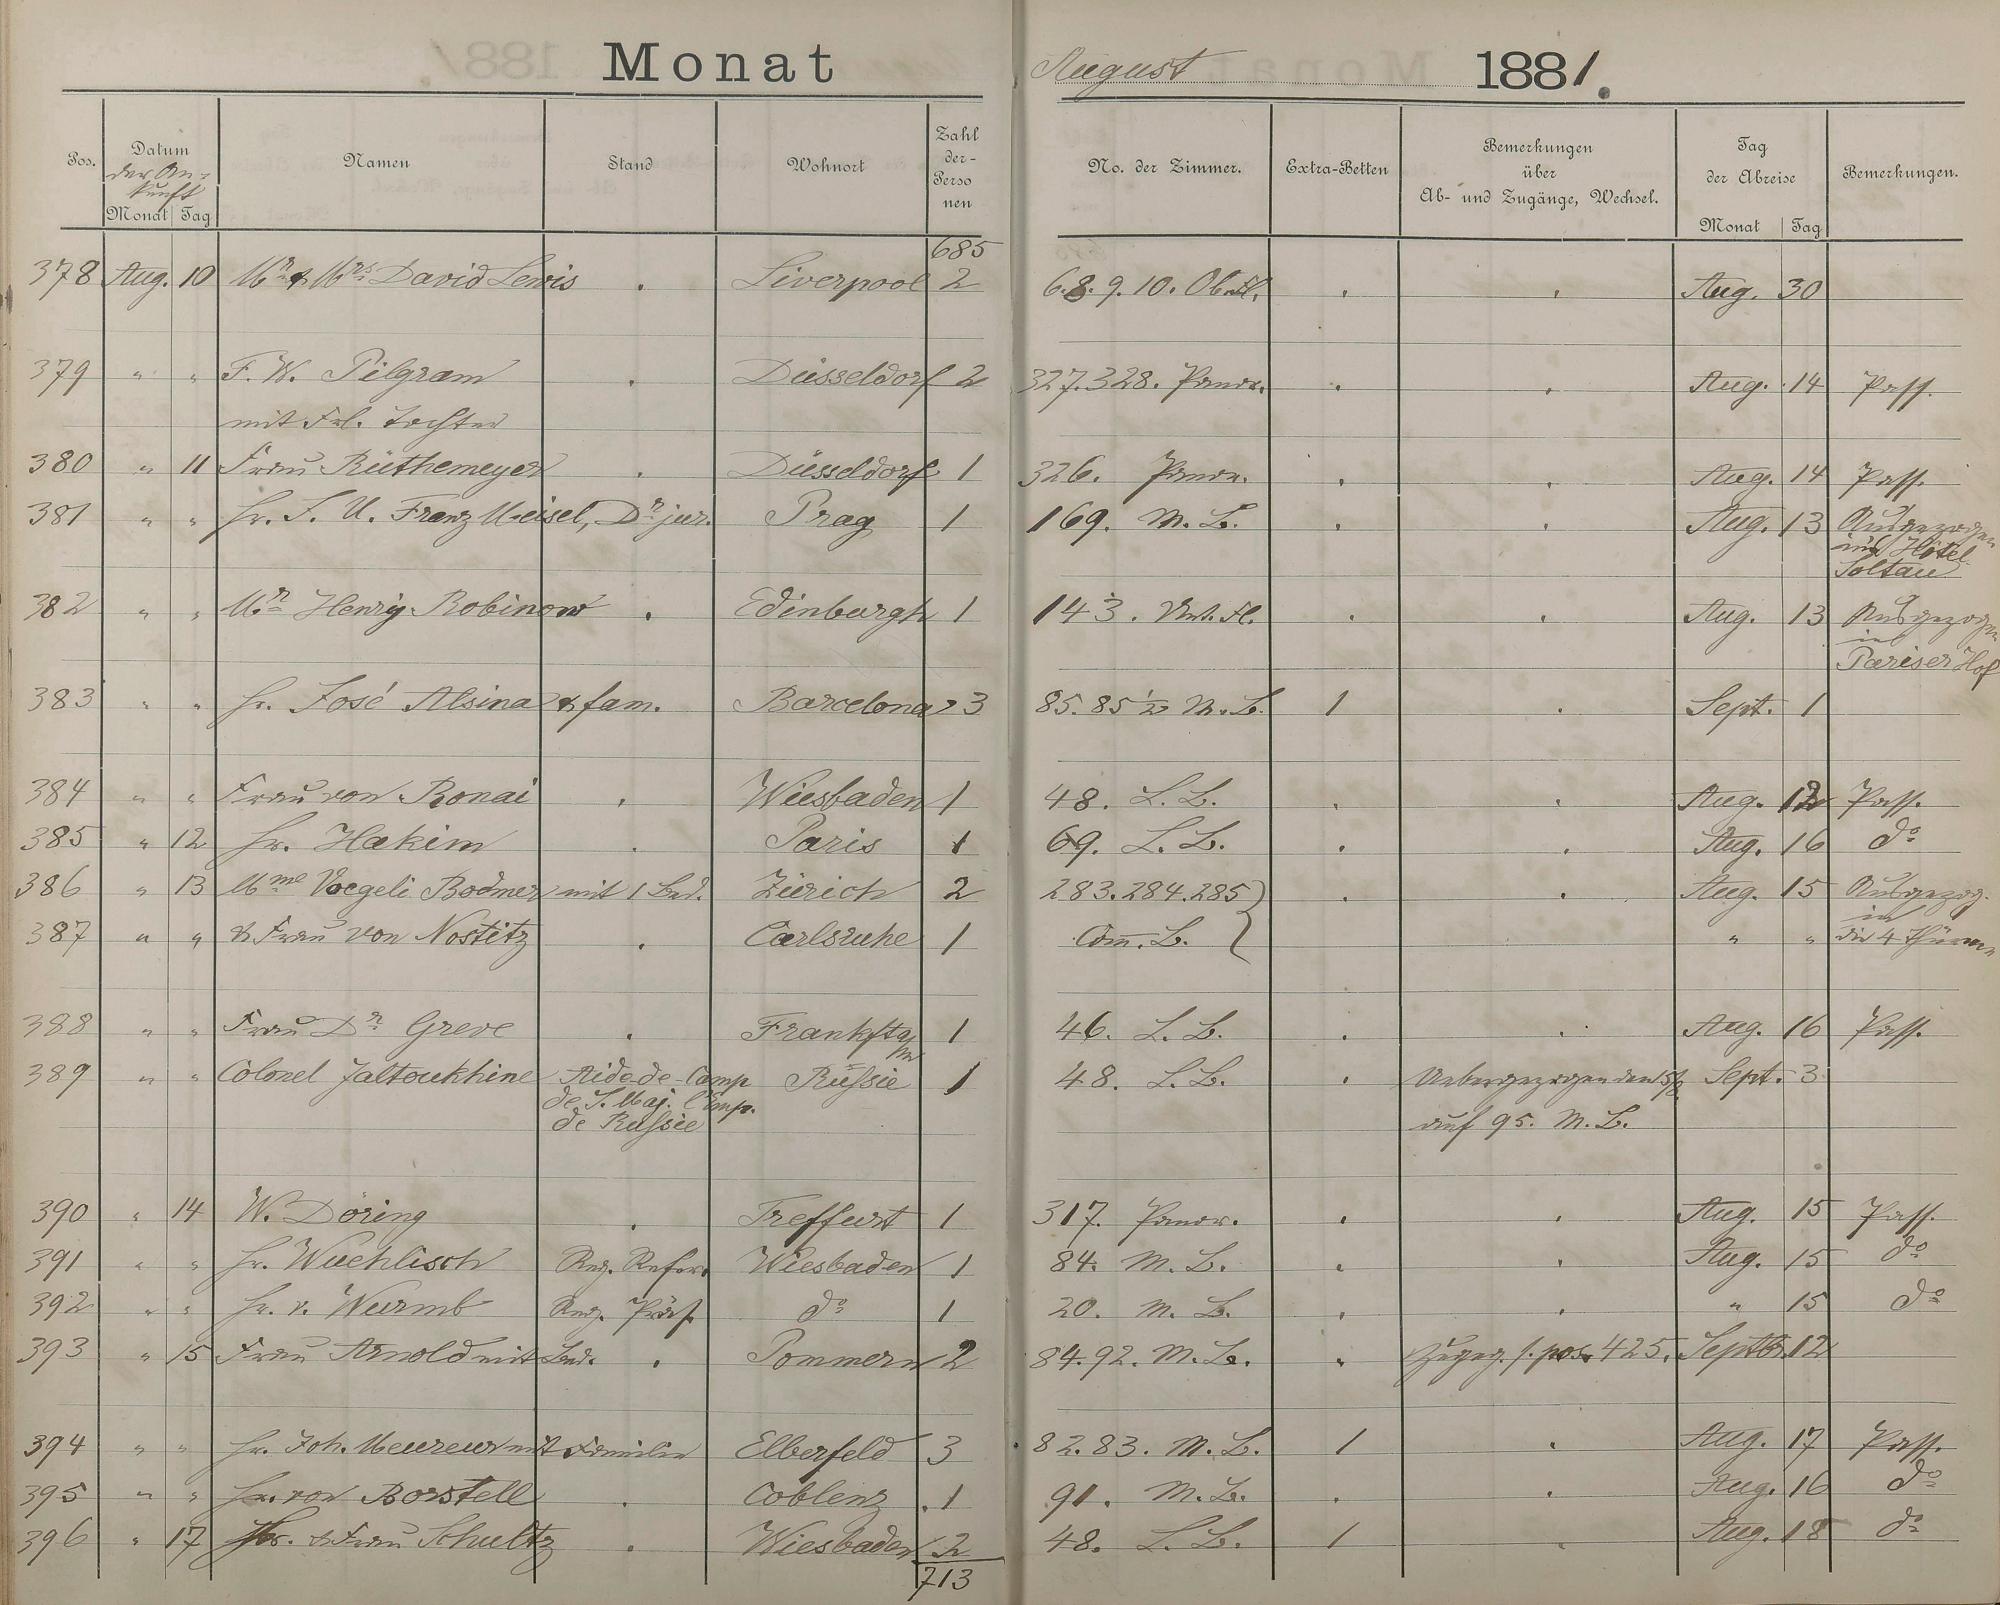 Monat August 1881.
Pos. Datum Namen Stand Wohnort Zahl der Personen No. der Zimmer. Extra-Betten Bemerkungen über Ab- und Zugänge, Wechsel. Tag der Abreise Bemerkungen.
der Ankunft
Monat Tag Monat Tag
685
378 Aug. 10 Mr. & Mrs. David Lewis . Liverpool 2 6.8.9.10. Ob. Fl. . . Aug. 30
379 " " F. W. Pilgram . Düsseldorf 2 327.328. Panor. . . Aug. 14 Pass.
mit Frl. Tochter
380 " 11 Frau Rüthemeyer . Düsseldorf 1 326. Panor. . . Aug. 14 Pass.
381 " " Hr. J. U. Franz Meisel, Dr. jur. Prag 1 169. M. B. . . Aug. 13 Ausgezogen
ins Hôtel
Soltau
382 " " Mr. Henry Robinow . Edinburgh 1 143. Unt. Fl. . . Aug. 13 Ausgezogen
in
Pariser Hof
383 " " Hr. José Alsina & fam. Barcelona 3 85. 85 1/2 M. B. 1 . Sept. 1
384 " " Frau von Ronai . Wiesbaden 1 48. L. B. . . Aug. 12 Pass.
385 " 12 Hr. Hakim . Paris 1 69. L. B. . . Aug. 16 do
386 " 13 Mme Voegeli Bodmer mit 1 Bed. Zürich 2 283.284.285 } . . Aug. 15 Ausgezog.
in
387 " " & Frau von Nostitz . Carlsruhe 1 Com. B. " " die 4 Thürme
388 " " Frau Dr. Greve . Frankft a/m 1 46. L. B. . . Aug. 16 Pass.
389 " " Colonel Jaltoukhine Aide-de-Camp Russie 1 48. L. B. . Uebergezogen den 15/8 Sept. 3
de S. Maj. l'Emp.
de Russie auf 95. M. B.
390 " 14 W. Döring . Treffurt 1 317. Panor. . . Aug. 15 Pass.
391 " " Hr. Wuehlisch Reg. Refer. Wiesbaden 1 84. M. B. . . Aug. 15 do
392 " " Hr. v. Wurmb Reg. Präs. do 1 20. M. B. . . " 15 do
393 " 15 Frau Arnold mit Bed. . Pommern 2 84.92. M. B. " Zugeg. s. pos. 425. Septbr. 12
394 " " Hr. Joh. Meurer mit Familie Elberfeld 3 82.83. M. B. 1 . Aug. 17 Pass.
395 " " Hr. von Borstell . Coblenz . 1 91. M. B. . . Aug. 16 do
396 " 17 Hr. & Frau Schultz . Wiesbaden 2 48. L. B. 1 . Aug. 18 do
713